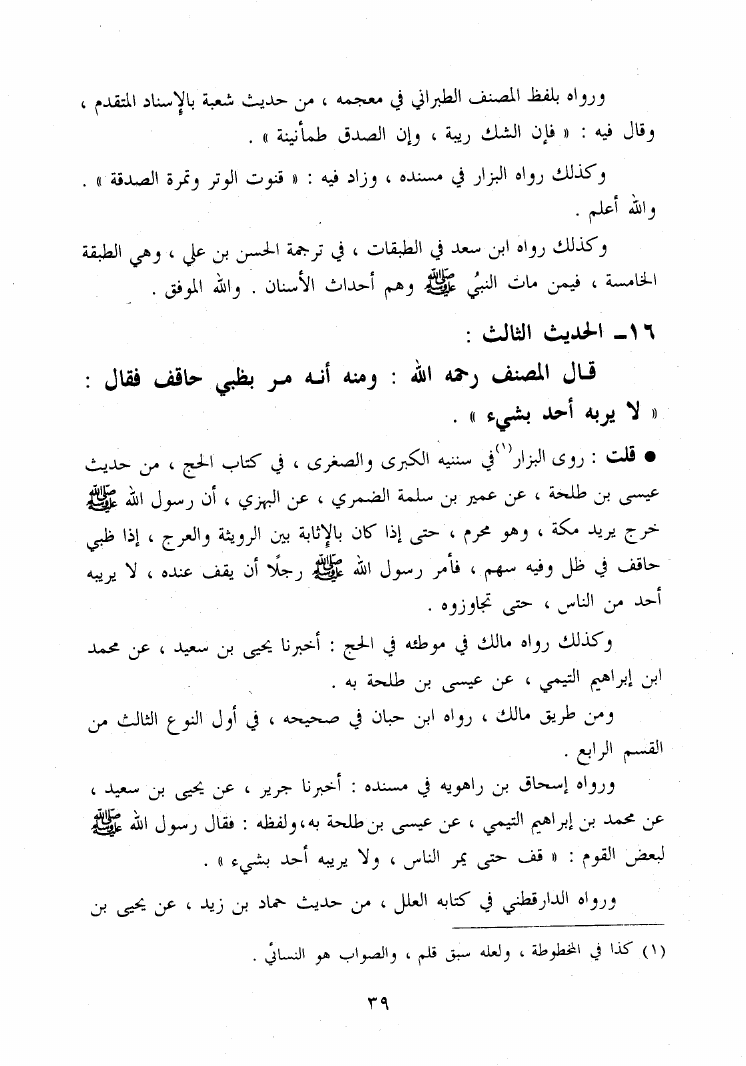 ورواه بلفظ المصنف الطبراني في معجمه ، من حديث شعبة بالإسناد المتقدم ،
وقال فيه : « فإن الشك ريبة ، وإن الصدق طمأنينة » .
وكذلك رواه البزار في مسنده ، وزاد فيه : « قنوت الوتر وتمرة الصدقة » .
والله أعلم .
وكذلك رواه ابن سعد في الطبقات ، في ترجمة الحسن بن علي ، وهي الطبقة
الخامسة ، فيمن مات النبيُ ﷺ وهم أحداث الأسنان . والله الموفق .
١٦ـ الحديث الثالث :
قال المصنف رحمه الله : ومنه أنه مر بظبي حاقف فقال :
« لا يربه أحد بشيء » .
● قلت : روى البزار(١) في سننيه الكبرى والصغرى ، في كتاب الحج ، من حديث
عيسى بن طلحة ، عن عمير بن سلمة الضمري ، عن البهزي ، أن رسول الله ﷺ
خرج يريد مكة ، وهو محرم ، حتى إذا كان بالإثابة بين الرويثة والعرج ، إذا ظبي
حاقف في ظل وفيه سهم ، فأمر رسول الله ﷺ رجلًا أن يقف عنده ، لا يريبه
أحد من الناس ، حتى تجاوزوه .
وكذلك رواه مالك في موطئه في الحج : أخبرنا يحيى بن سعيد ، عن محمد
ابن إبراهيم التيمي ، عن عيسى بن طلحة به .
ومن طريق مالك ، رواه ابن حبان في صحيحه ، في أول النوع الثالث من
القسم الرابع .
ورواه إسحاق بن راهويه في مسنده : أخبرنا جرير ، عن يحيى بن سعيد ،
عن محمد بن إبراهيم التيمي ، عن عيسى بن طلحة به، ولفظه : فقال رسول الله ﷺ
لبعض القوم : « قف حتى يمر الناس ، ولا يريبه أحد بشيء » .
ورواه الدارقطني في كتابه العلل ، من حديث حماد بن زيد ، عن يحيى بن
(١) كذا في المخطوطة ، ولعله سبق قلم ، والصواب هو النسائي .
٣٩